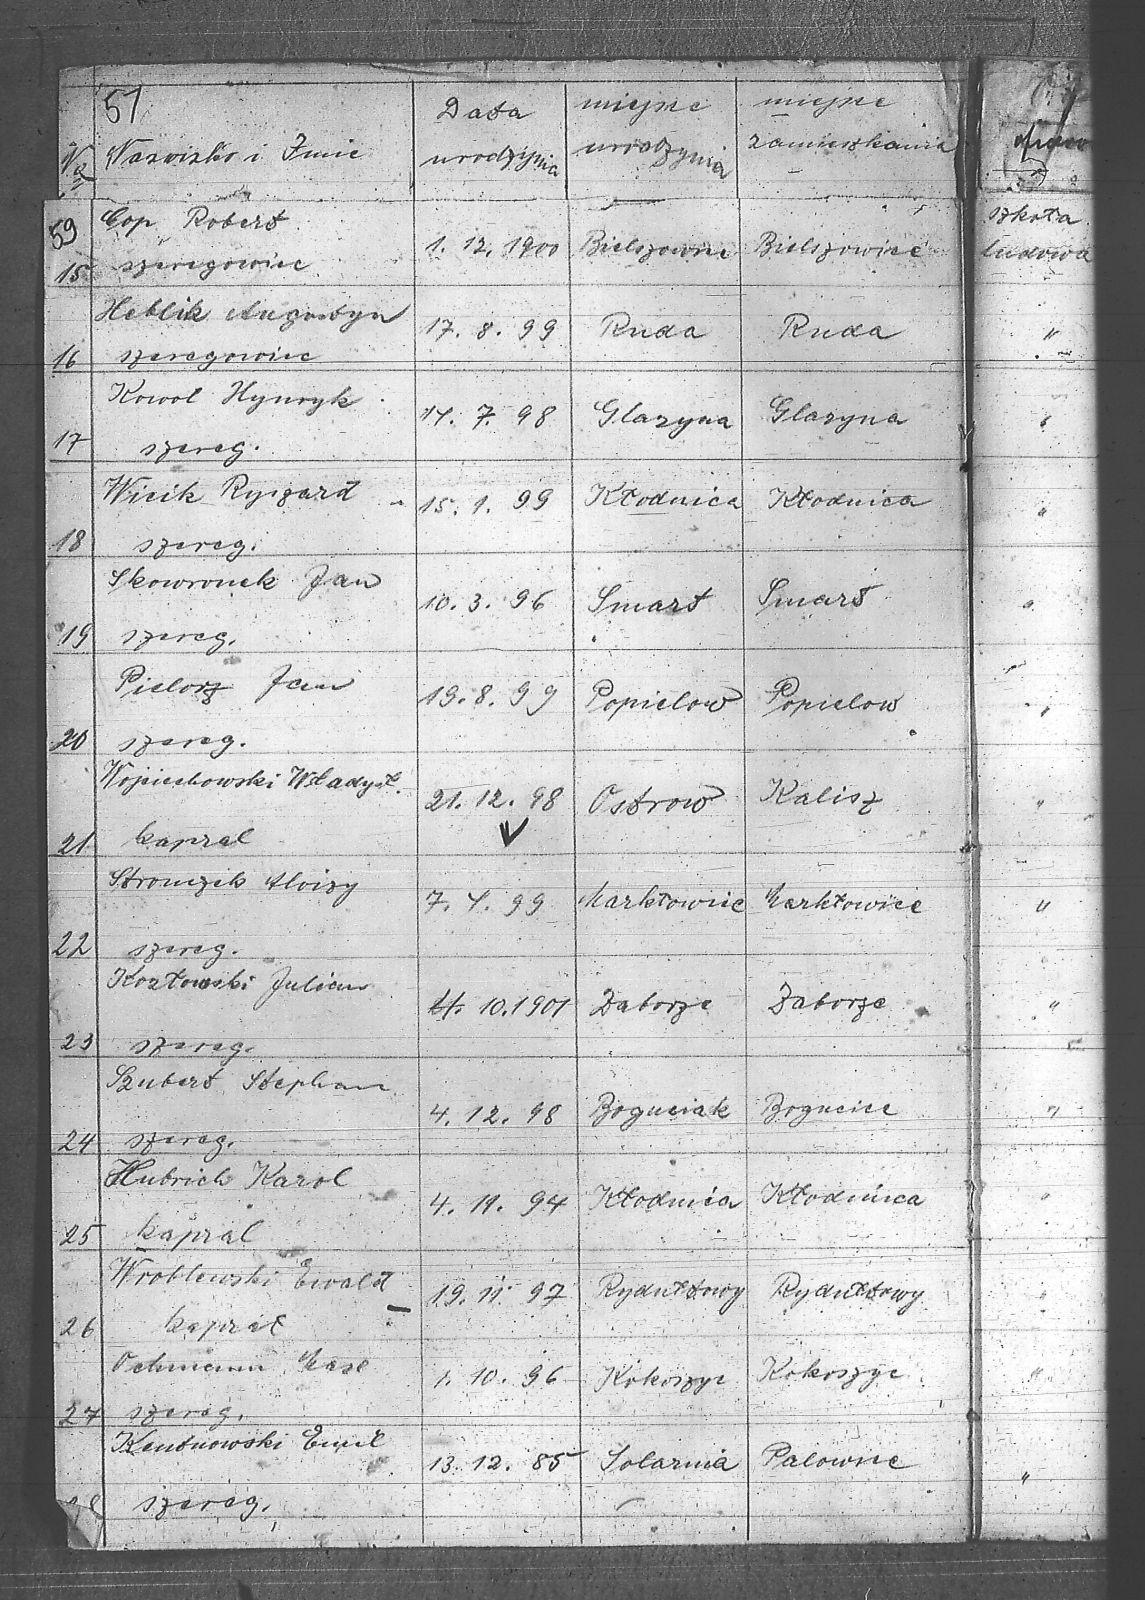 51
Nazwisko i Imie
Data
urodzynia
miejsce
urodzynia
miejsce
zamieszkania
59
Cop Robert 1. 12. 1900 Bielszowice Bielszowice szkoła ludowa
15 szeregowiec
Heblik Augustyn 17. 8. 99 Ruda Ruda "
16 szeregowiec
Kowol Hynryk 14. 7. 98 Glazyna Glazyna "
17 szereg.
Wicik Ryszard 15. 1. 99 Kłodnica Kłodnica "
18 szereg.
Skowronek Jan 10. 3. 96 Smart Smart "
19 szereg.
Pielorz Jan 19. 8. 99 Popielow Popielow "
20 szereg.
Wojciechowski Władysł. 21. 12. 98 Ostrow Kalisz "
21 kapral
Stronczek Aloizy 7. 4. 99 Markłowice Markłowice "
22 szereg.
Kozłowski Julian 4. 10. 1901 Zaborze Zaborze "
23 szereg.
Szubert Stephan 4. 12. 98 Boguciak Bogucice "
24 szereg.
Hubrich Karol 4. 11. 94 Kłodnica Kłodnica "
25 kapral
Wroblewski Ewald 19. 11. 97 Rydułtowy Rydułtowy "
26 kapral
Ochmann 1. 10. 96 Kokoszyc Kokoszyc "
27 szereg.
Emil 13. 12. 85 Solarnia Palowice "
szereg.